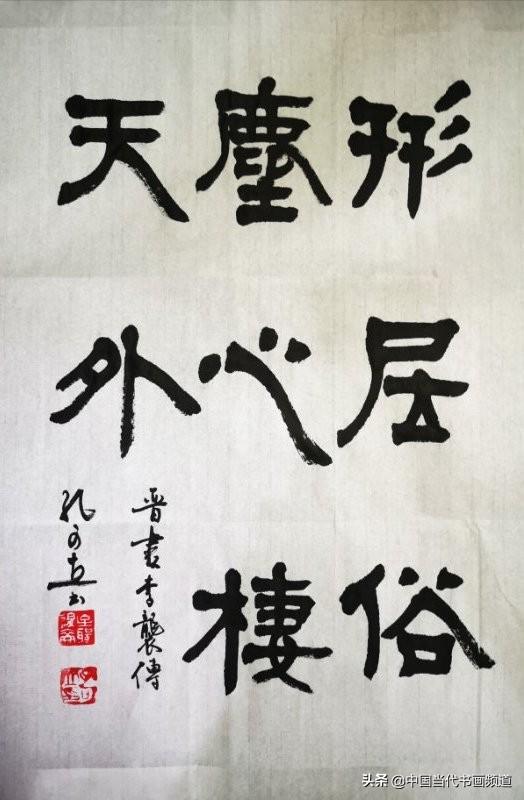 形居俗
塵心棲
天外
晋書李襲傳
孔可
头条 @中国当代书画频道